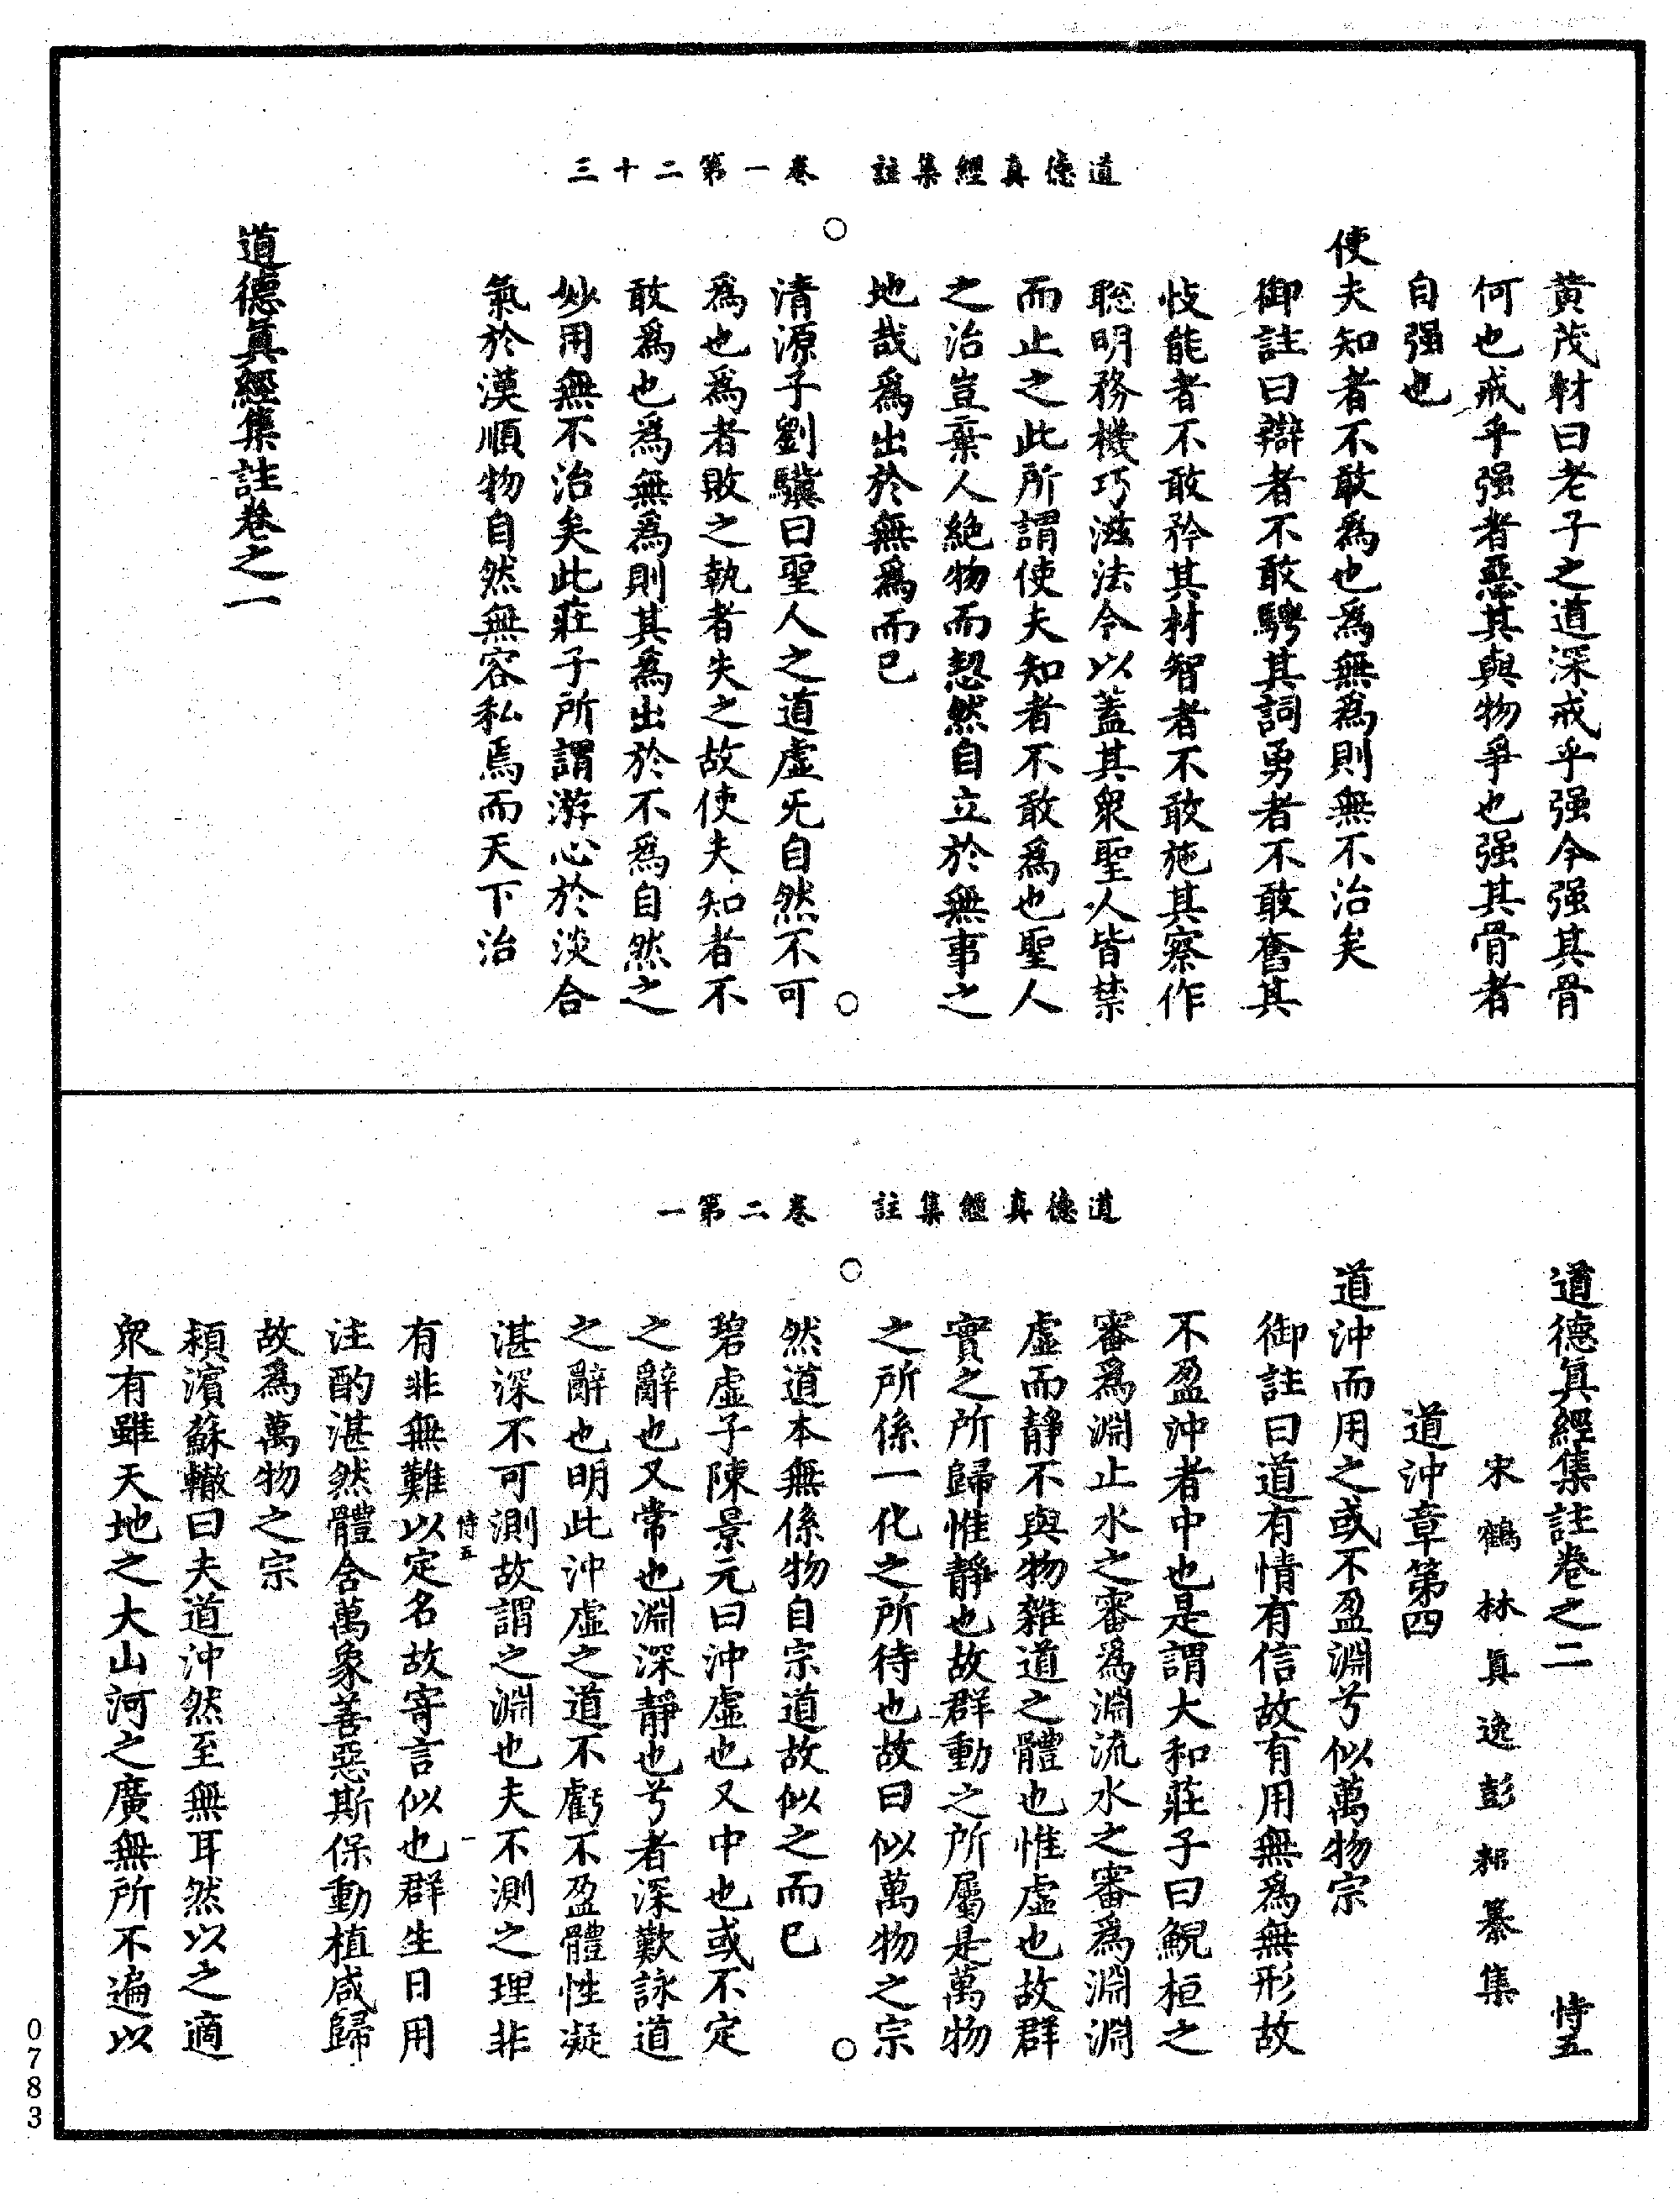 道德真經集註　卷一第二十三
黄茂材曰老子之道深戒乎强今强其骨
何也戒乎强者惡其與物爭也强其骨者
自强也
使夫知者不敢爲也爲無爲則無不治矣
御註曰辯者不敢騁其詞勇者不敢奮其
忮能者不敢矜其材智者不敢施其察作
聦明務機巧滋法令以蓋其衆聖人皆禁
而止之此所謂使夫知者不敢爲也聖人
之治豈棄人絶物而恝然自立於無事之
地哉爲出於無爲而已
清源子劉驥曰聖人之道虛无自然不可
爲也爲者敗之執者失之故使夫知者不
敢爲也爲無爲則其爲出於不爲自然之
妙用無不治矣此莊子所謂游心於淡合
氣於漠順物自然無容私焉而天下治
道德眞經集註卷之一
道德真經集註　卷二第一
道德眞經集註卷之二　恃五
宋鶴林眞逸彭耜纂集
道沖章第四
道沖而用之或不盈淵兮似萬物宗
御註曰道有情有信故有用無爲無形故
不盈沖者中也是謂大和莊子曰鯢桓之
審爲淵止水之審爲淵流水之審爲淵淵
虛而靜不與物雜道之體也惟虛也故群
實之所歸惟靜也故群動之所屬是萬物
之所係一化之所待也故曰似萬物之宗
然道本無係物自宗道故似之而已
碧虛子陳景元曰沖虛也又中也或不定
之辭也又常也淵深靜也兮者深歎詠道
之辭也明此沖虛之道不虧不盈體性凝
湛深不可測故謂之淵也夫不測之理非
恃五
有非無難以定名故寄言似也群生日用
注酌湛然體含萬象善惡斯保動植咸歸
故爲萬物之宗
頴濱蘇轍曰夫道沖然至無耳然以之適
衆有雖天地之大山河之廣無所不遍以
0783